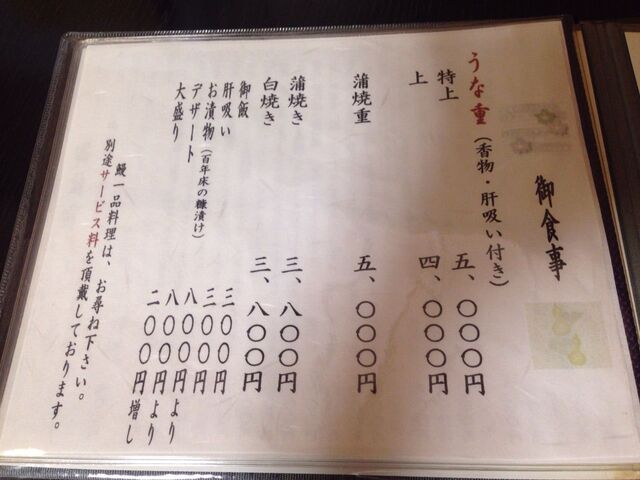 御食事
うな重（香物・肝吸い付き）
特上 五、〇〇〇円
上 四、〇〇〇円
蒲焼重 五、〇〇〇円
蒲焼き 三、八〇〇円
白焼き 三、八〇〇円
御飯 三〇〇円
肝吸い 三〇〇円
お漬物（百年床の糠漬け） 八〇〇円より
デザート 八〇〇円より
大盛り 二〇〇円増し
鰻一品料理は、お尋ね下さい。
別途サービス料を頂戴しております。